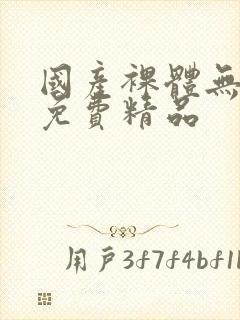 國產裸體無
免費精品
用戶3f7f4bf1b